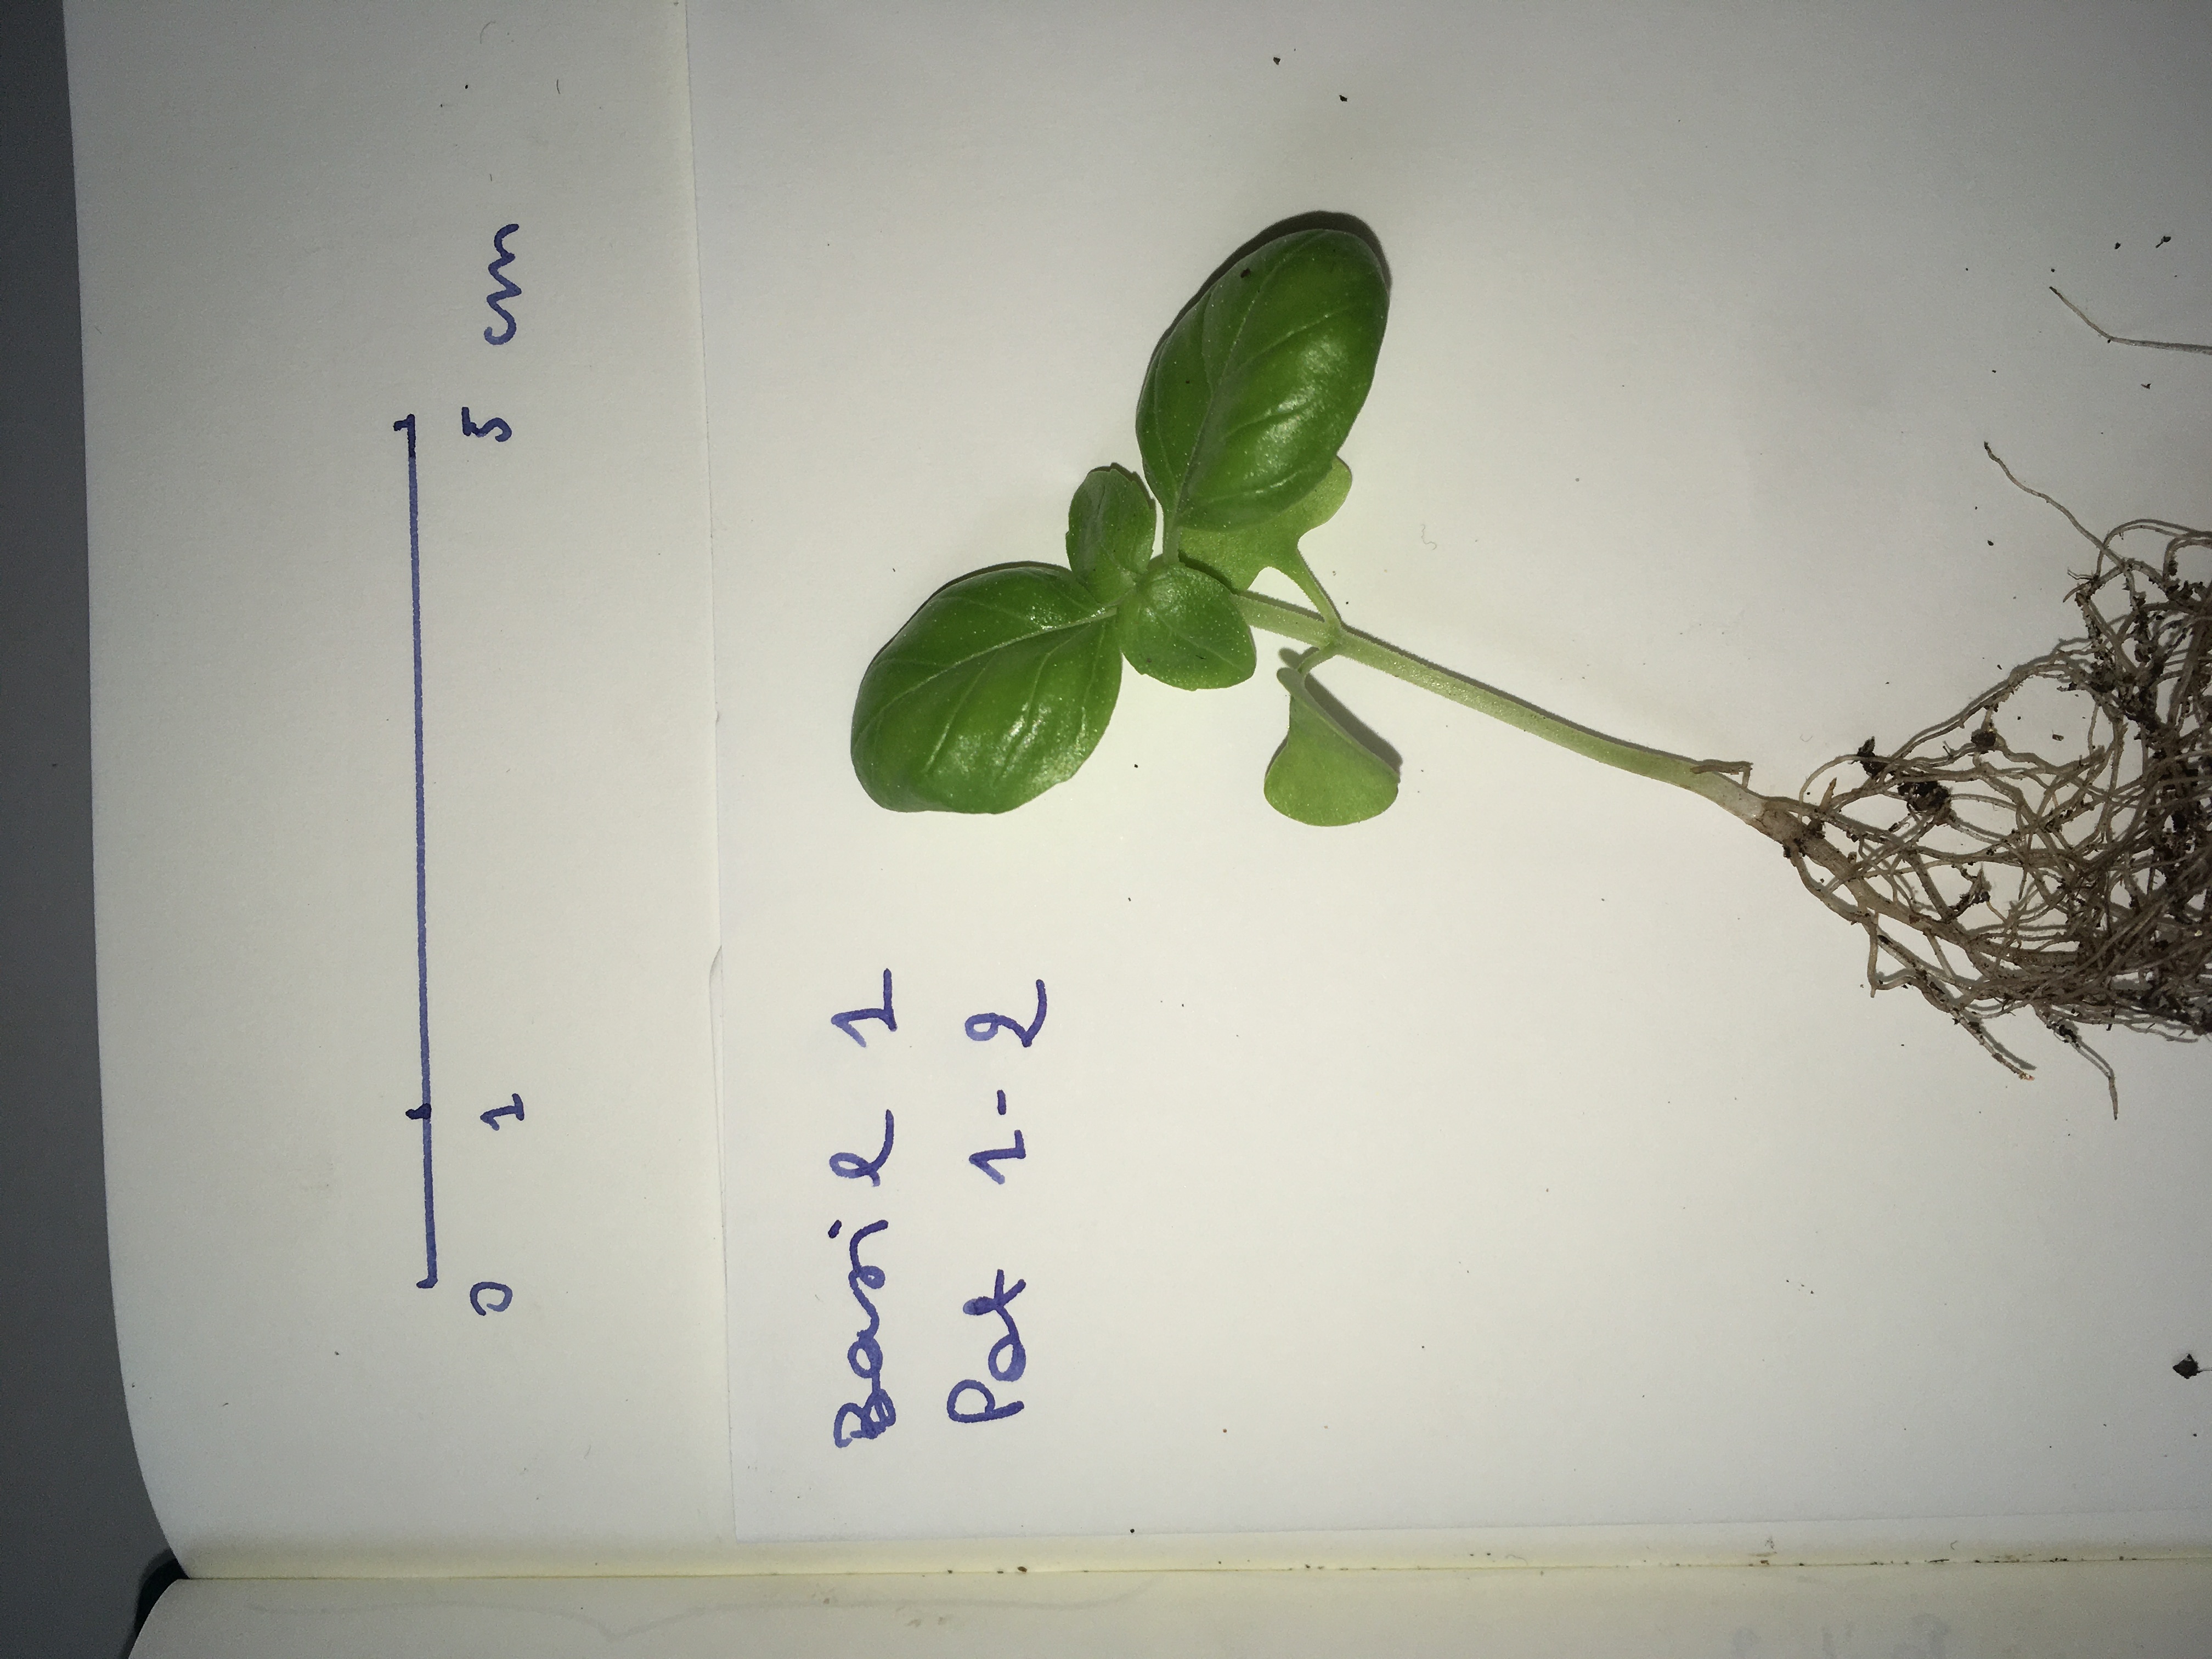 0 1 5 cm
Basil 1
Pot 1-2